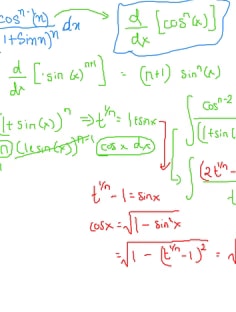 cos^{n-1}(x) / (1+sinx)^n dx
d/dx [cos^n(x)]
d/dx [sin(x)^{n+1}] = (n+1) sin^n(x)
1+sin(x))^n ⇒ t^{1/n} = 1+sinx
n (1+sin(x))^{n-1} cosx dx
∫ cos^{n-2} / (1+sin(
∫ (2t^{1/n} - / t
t^{1/n} - 1 = sinx
cosx = √(1 - sin²x)
= √(1 - (t^{1/n} - 1)²) = √